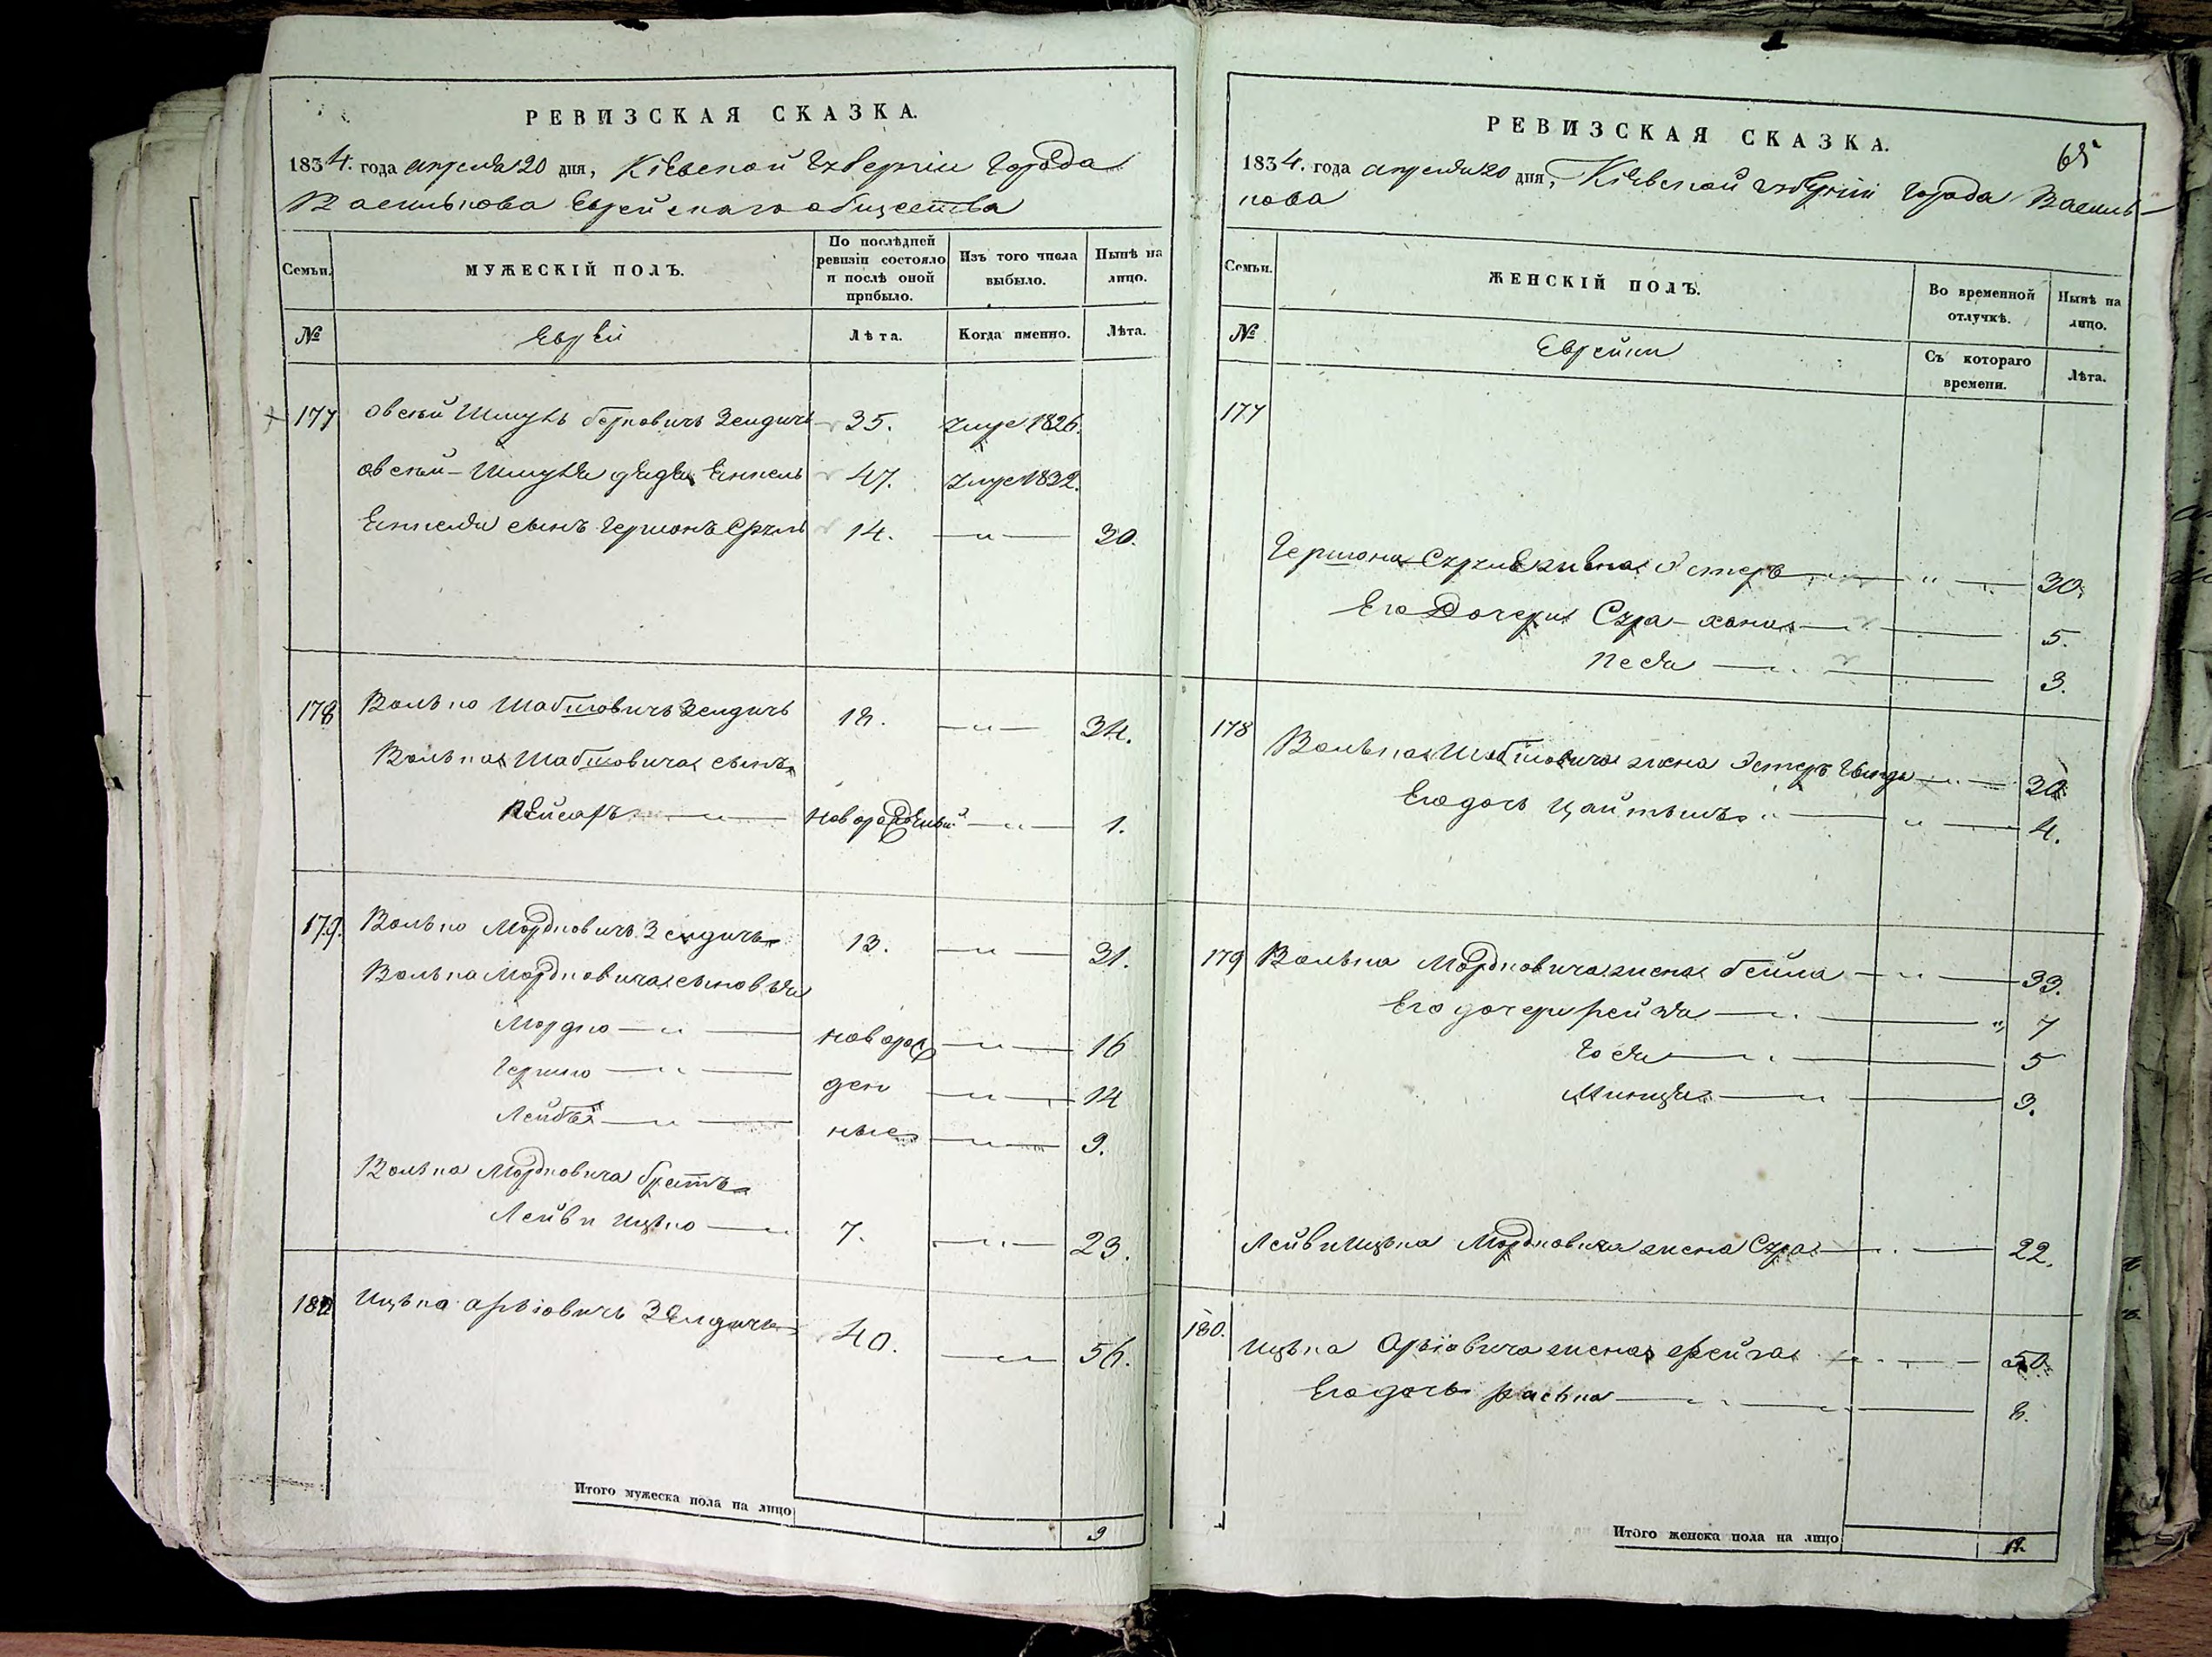 РЕВИЗСКАЯ СКАЗКА.
1834. года апреля 20 дня, Кіевской Губерніи Города
Василькова Еврейскаго общества
Семьи.
МУЖЕСКІЙ ПОЛЪ.
По послѣдней ревизіи состояло и послѣ оной прибыло.
Изъ того числа выбыло.
Нынѣ на лицо.
№
Еврей
Лѣта.
Когда именно.
Лѣта.
177 Овсей Шмуль Берковичъ Зелдичъ 35. умре 1826.
Овсей-Шмуля дядя Еннель 47. умре 1832.
Еннеля сынъ Гершонъ Сруль 14. — „ — 30.
178 Волько Шабшовичъ Зелдичъ 18. — „ — 34.
Волька Шабшовича сынъ
Пейсахъ — „ — новорожденый — „ — 1.
179. Волько Мордковичъ Зелдичъ 13. — „ — 31.
Волька Мордковича сыновья
Мордко — „ — новорож — „ — 16
Гершко — „ — ден — „ — 14
Лейбъ — „ — ные — „ — 9.
Волька Мордковича братъ
Лейб Ицко — „ 7. — „ — 23.
180 Ицька Арьіовичъ Зелдичъ 40. — „ — 56.
Итого мужеска пола на лицо 9
РЕВИЗСКАЯ СКАЗКА.
65
1834. года апреля 20 дня, Кіевской губерніи Города Василь-
кова
Семьи.
ЖЕНСКІЙ ПОЛЪ.
Во временной отлучкѣ.
Нынѣ на лицо.
№
Еврейки
Съ котораго времени.
Лѣта.
177
Гершона Сруля жена Эстеръ — „ — 30.
Его Дочери Сура-хана — „ — 5.
Песя — „ — 3.
178 Волька Шабшовича жена Эстеръ — „ — 30
Его дочь — „ — 4.
179 Волька Мордковича жена Бейла — „ — 33.
Его дочери Рейзя — „ — 7
Гося — „ — 5
Минця — „ — 3.
Лейб Ицька Мордковича жена Сура — „ — 22.
180. Ицька Арьіовича жена Фейга — „ — 50.
Его дочь Раська — „ — 8.
Итого женска пола на лицо